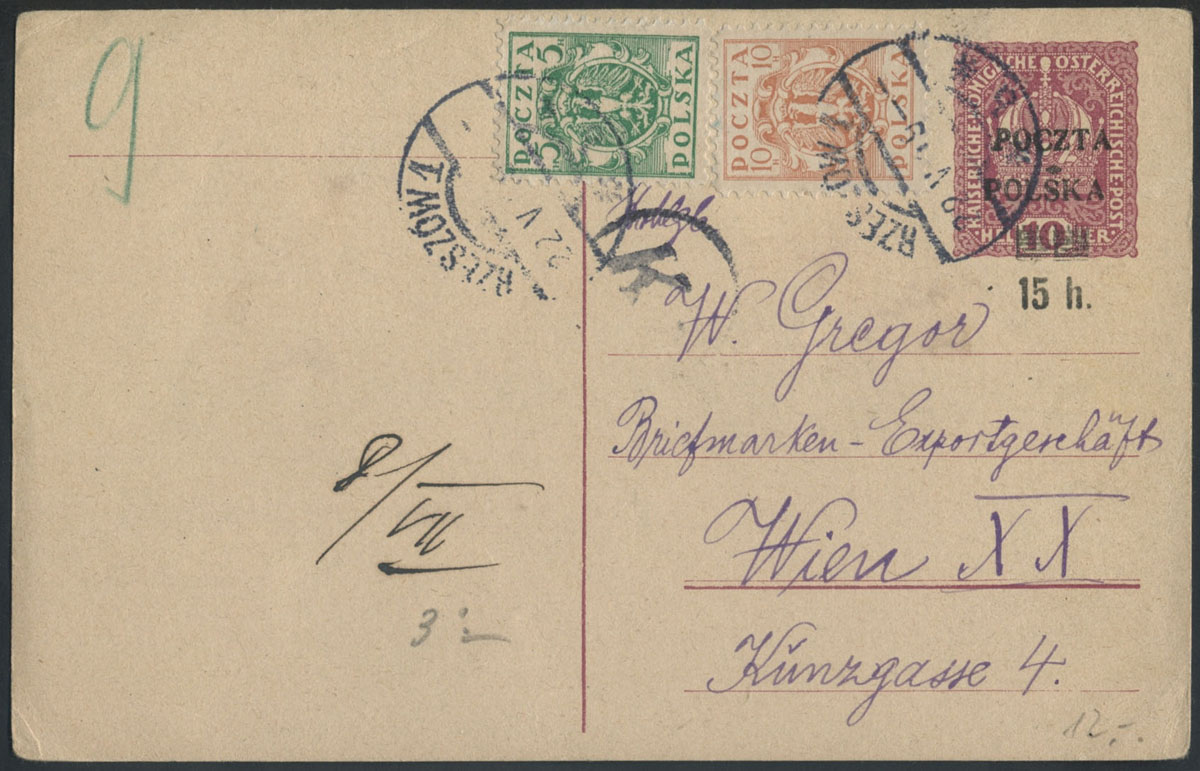 9
5 POCZTA 5H
5 POLSKA
10 POCZTA 10H
POLSKA
KAISERLICHE KÖNIGLICHE ÖSTERREICHISCHE POST
POCZTA
POLSKA
HELLER
10
15 h.
RZESZÓW 1
22 V
RZESZÓW 1
K
W. Gregor
Briefmarken-Exportgeschäft
Wien XX
Kunzgasse 4.
8/VII
3:-
12.-